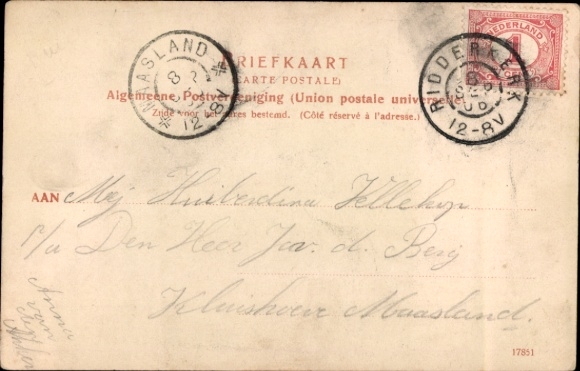 BRIEFKAART
(CARTE POSTALE)
Algemeene Postvereeniging (Union postale universelle)
Zijde voor het adres bestemd. (Côté réservé à l'adresse.)
MAASLAND
8
12-8V
NEDERLAND
1
CENT
RIDDERKERK
8 SEP
06
12-8V
AAN Mej Huiberdina Vellekop
p/a Den Heer Jac. d. Berg
Kluishoeve Maasland.
Anna
van
17851